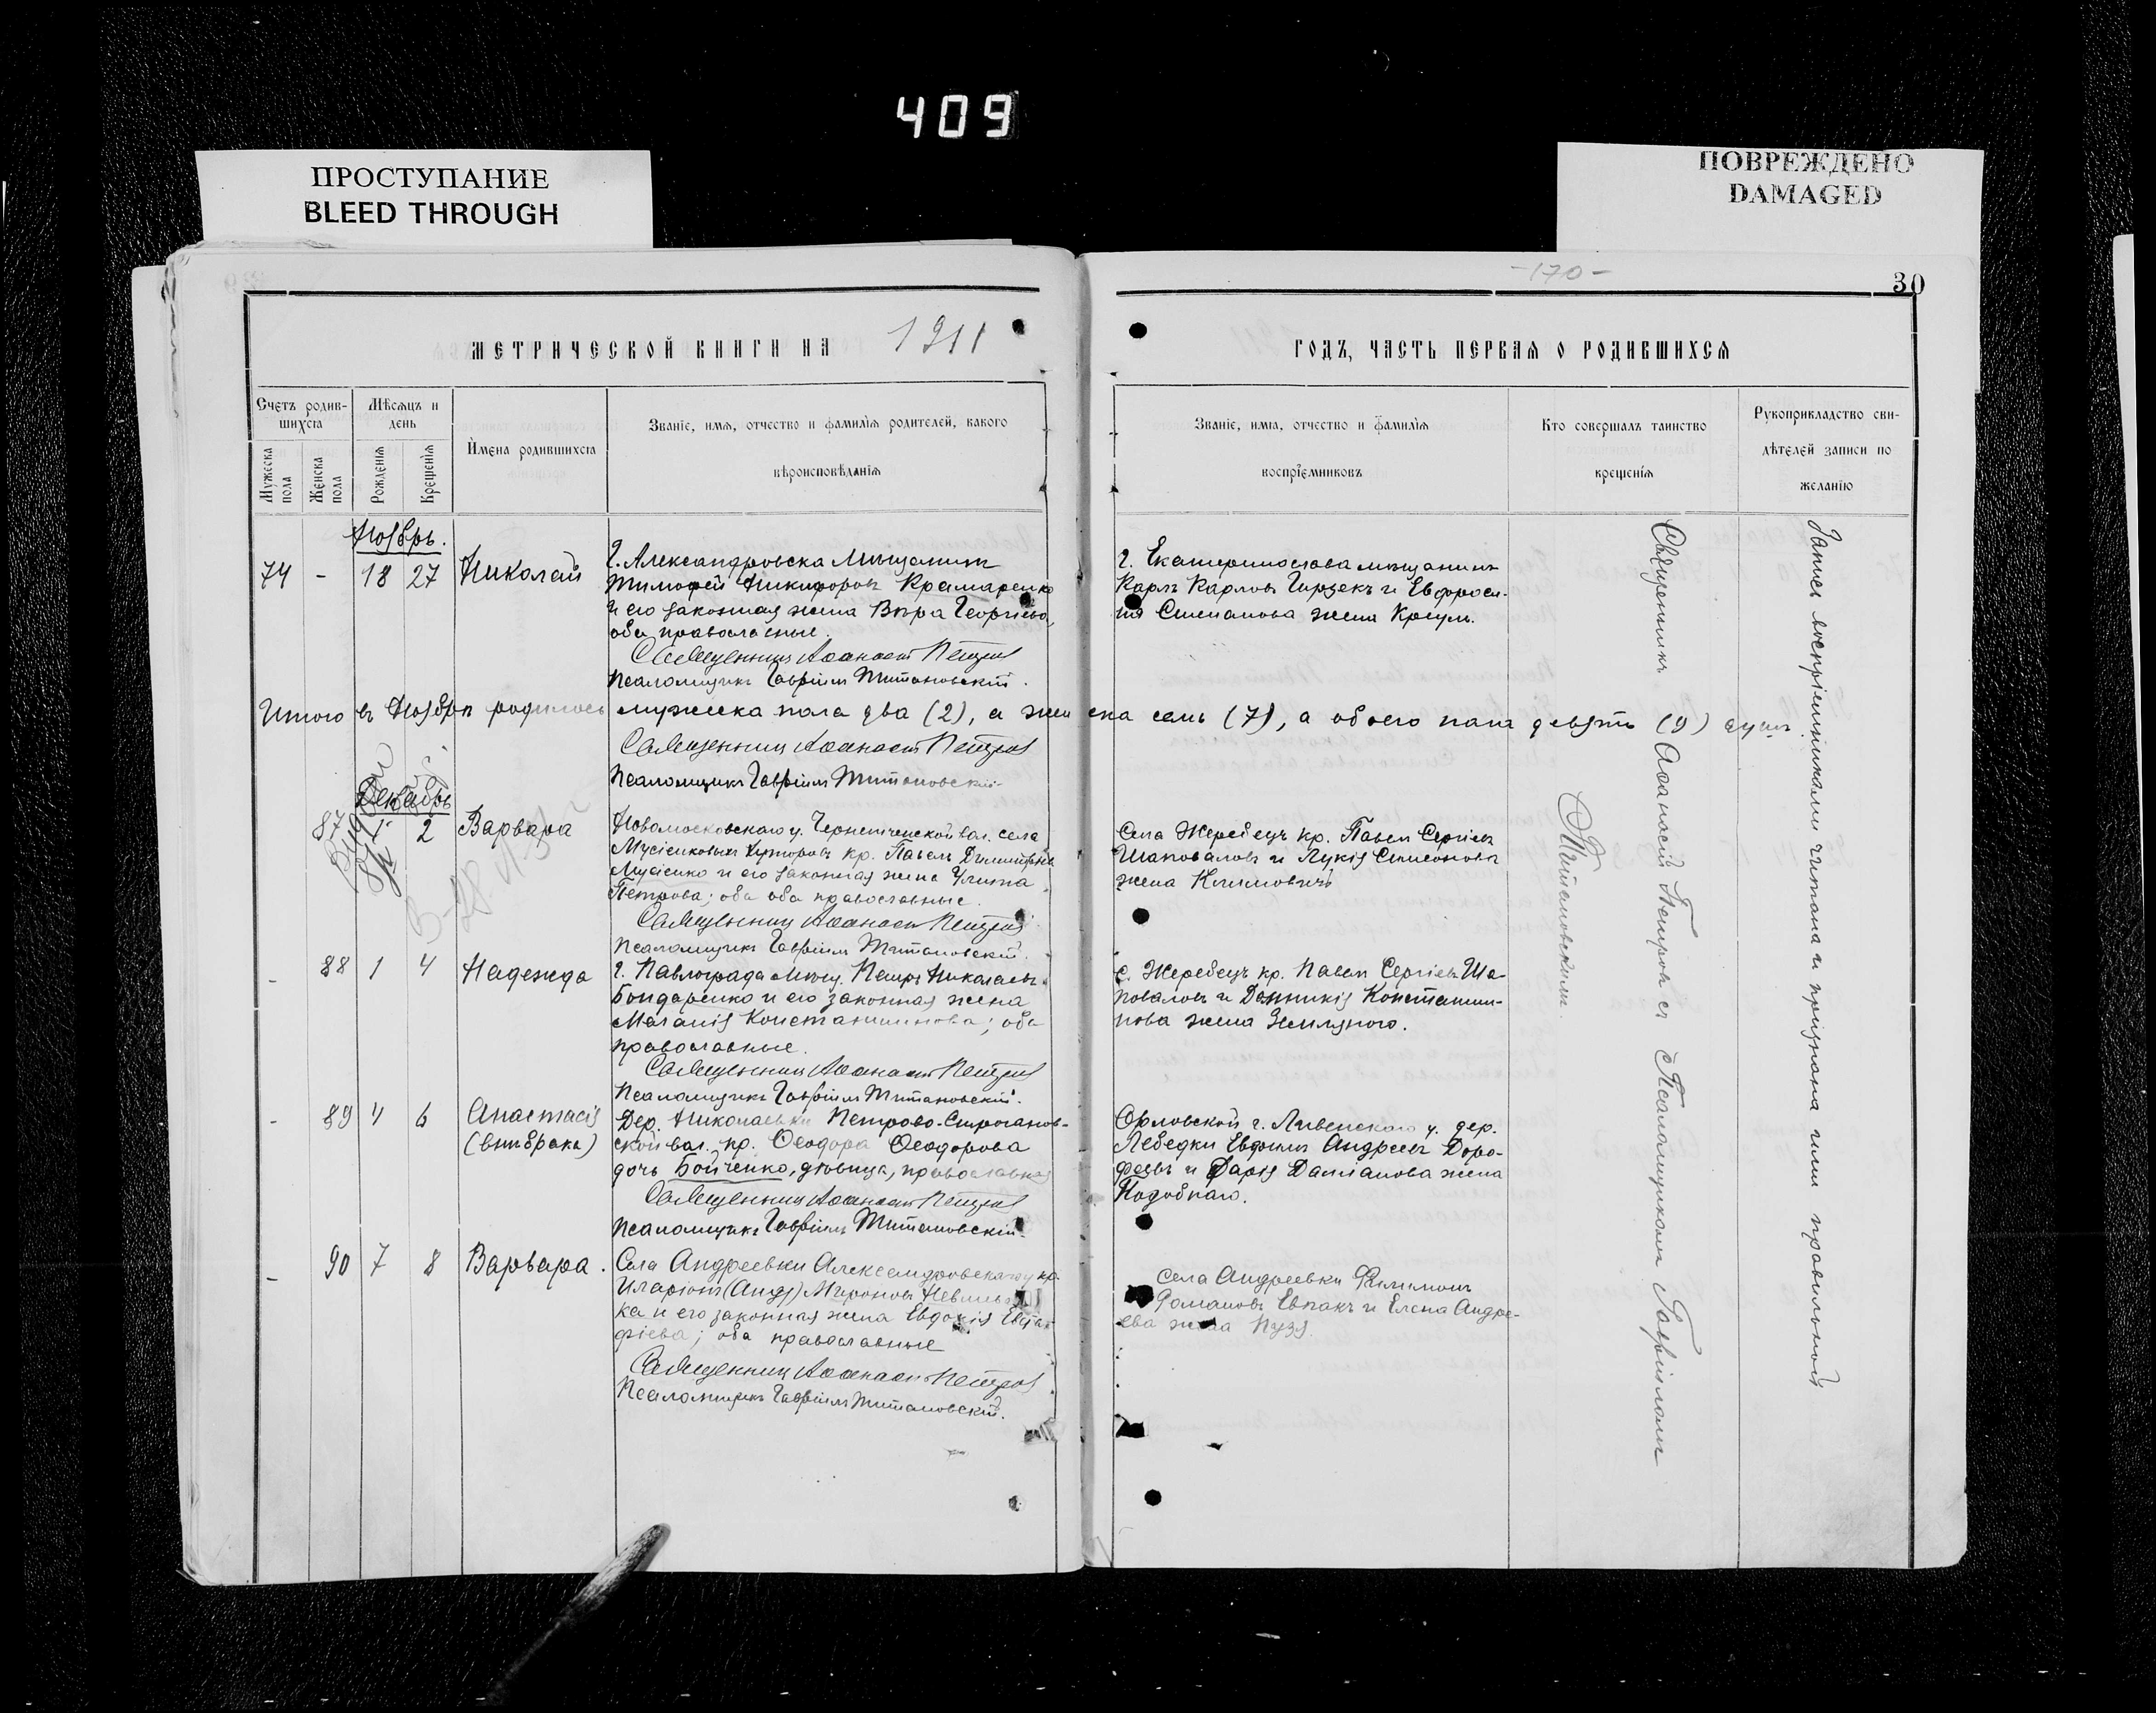 409
ПРОСТУПАНИЕ
BLEED THROUGH
ПОВРЕЖДЕНО
DAMAGED
-170-
30
МЕТРИЧЕСКОЙ КНИГИ НА 1911
ГОДЪ, ЧАСТЬ ПЕРВАЯ О РОДИВШИХСЯ
Счетъ родив-
шихся
Мужеска пола
Женска пола
Мѣсяцъ и
день
Рожденія
Крещенія
Имена родившихся
Званіе, имя, отчество и фамилія родителей, какого
вѣроисповѣданія
Званіе, имя, отчество и фамилія
воспріемниковъ
Кто совершалъ таинство
крещенія
Рукоприкладство сви-
дѣтелей записи по
желанію
Ноябрь.
74 - 18 27 Николай
Г. Александровска Мѣщанинъ
Тимофей Никифоровъ Крамаренко
и его законная жена Вѣра Георгіева,
оба православные.
Священникъ Аѳанасій Петровъ
Псаломщикъ Гавріилъ Титановскій.
г. Екатеринослава мѣщанинъ
Карлъ Карловъ Гирзекъ и Евфроси-
нія Степанова жена
Итого въ Ноябрѣ родилось мужеска пола два (2), а женска семь (7), а обоего пола девять (9) душъ.
Священникъ Аѳанасій Петровъ
Псаломщикъ Гавріилъ Титановскій.
Декабрь
87 1 2 Варвара
Новомосковскаго у. вол. села
Мусіенковыхъ Хуторовъ кр. Павелъ Димитріевъ
Мусіенко и его законная жена Улита
Петрова; оба оба православные.
Священникъ Аѳанасій Петровъ
Псаломщикъ Гавріилъ Титановскій.
Села Жеребецъ кр. Павелъ Сергіевъ
Шаповаловъ и Лукія Симеонова
жена Климовичъ
- 88 1 4 Надежда
г. Павлограда мѣщ. Петръ Николаевъ
Бондаренко и его законная жена
Меланія Константинова; оба
православные.
Священникъ Аѳанасій Петровъ
Псаломщикъ Гавріилъ Титановскій.
с. Жеребецъ кр. Павелъ Сергіевъ Ша-
поваловъ и Домникія Константи-
нова жена Земляного.
- 89 4 6 Анастасія
(внѣ брака)
Дер. Николаевки Петрово-Строганов-
ской вол. кр. Ѳеодора Ѳеодорова
дочь Бойченко, дѣвица, православная
Священникъ Аѳанасій Петровъ
Псаломщикъ Гавріилъ Титановскій.
Орловской г. Ливенскаго у. дер.
Лебедки Евфимъ Андреевъ Доро-
феевъ и Дарія Даміанова жена
Подобнаго.
- 90 7 8 Варвара.
Села Андреевки Александровскаго у кр.
Иларіонъ (Анд) Мироновъ
ка и его законная жена Евдокія Евста-
фіева; оба православные
Священникъ Аѳанасій Петровъ
Псаломщикъ Гавріилъ Титановскій.
Села Андреевки Филимонъ
Романовъ Евпакъ и Елена Андре-
ева жена Пузя.
Священникъ Аѳанасій Петровъ съ Псаломщикомъ Гавріиломъ
Титановскимъ.
Запись воспріемниками читана и признана ими правильной